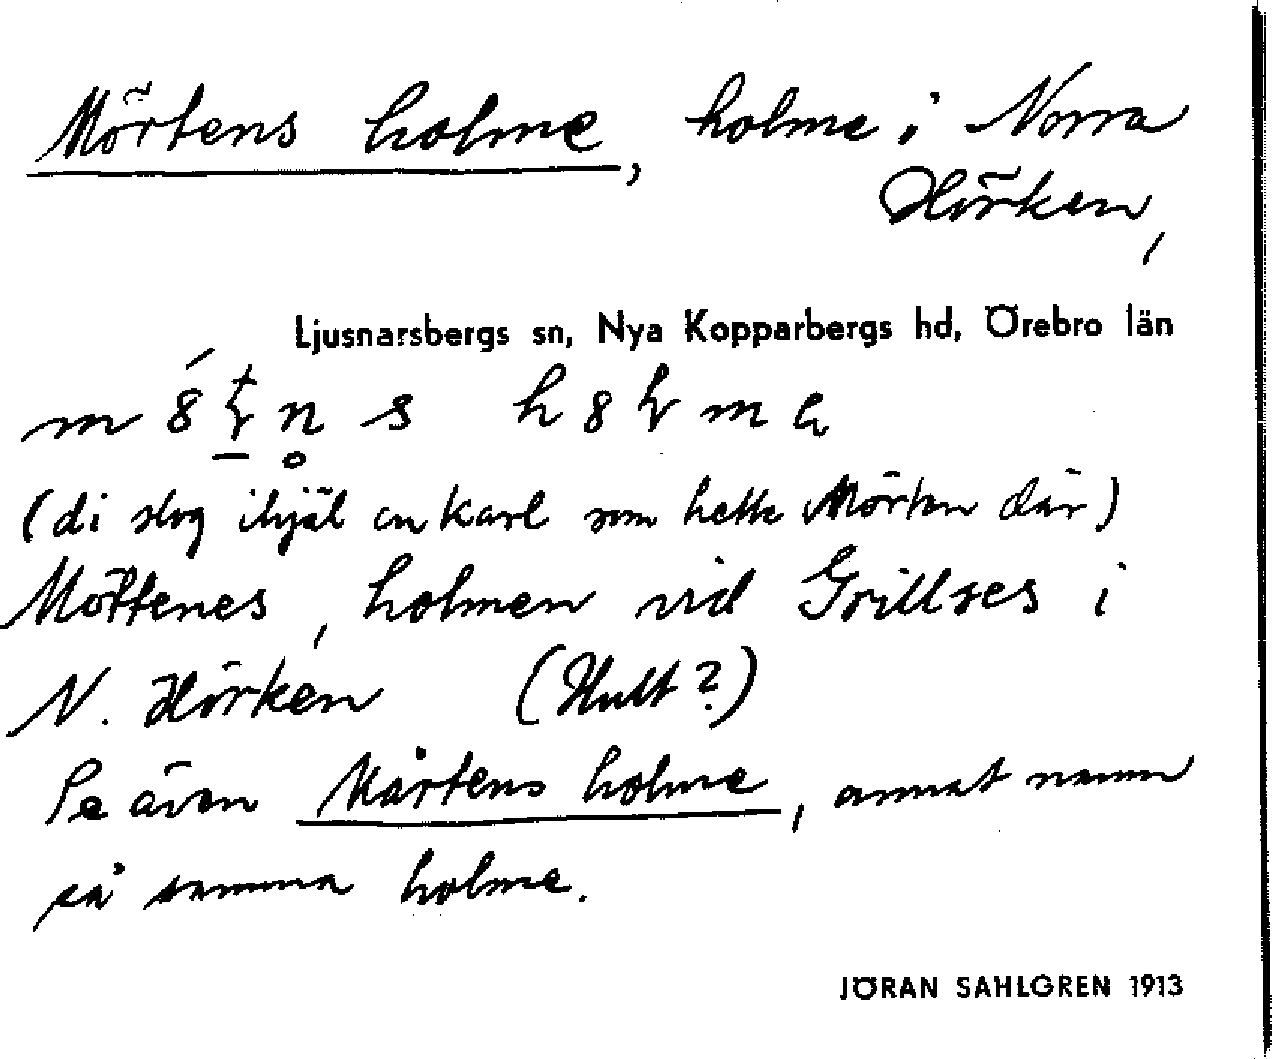 Mörtens holme, holme i Norra
Hörken,
Ljusnarsbergs sn, Nya Kopparbergs hd, Örebro län
(di slog ihjäl en karl som hette Mörten där)
Mörtenes, holmen vid Grillses i
N. Hörken (Hult?)
Se även Mårtens holme, annat namn
på samma holme.
JÖRAN SAHLGREN 1913